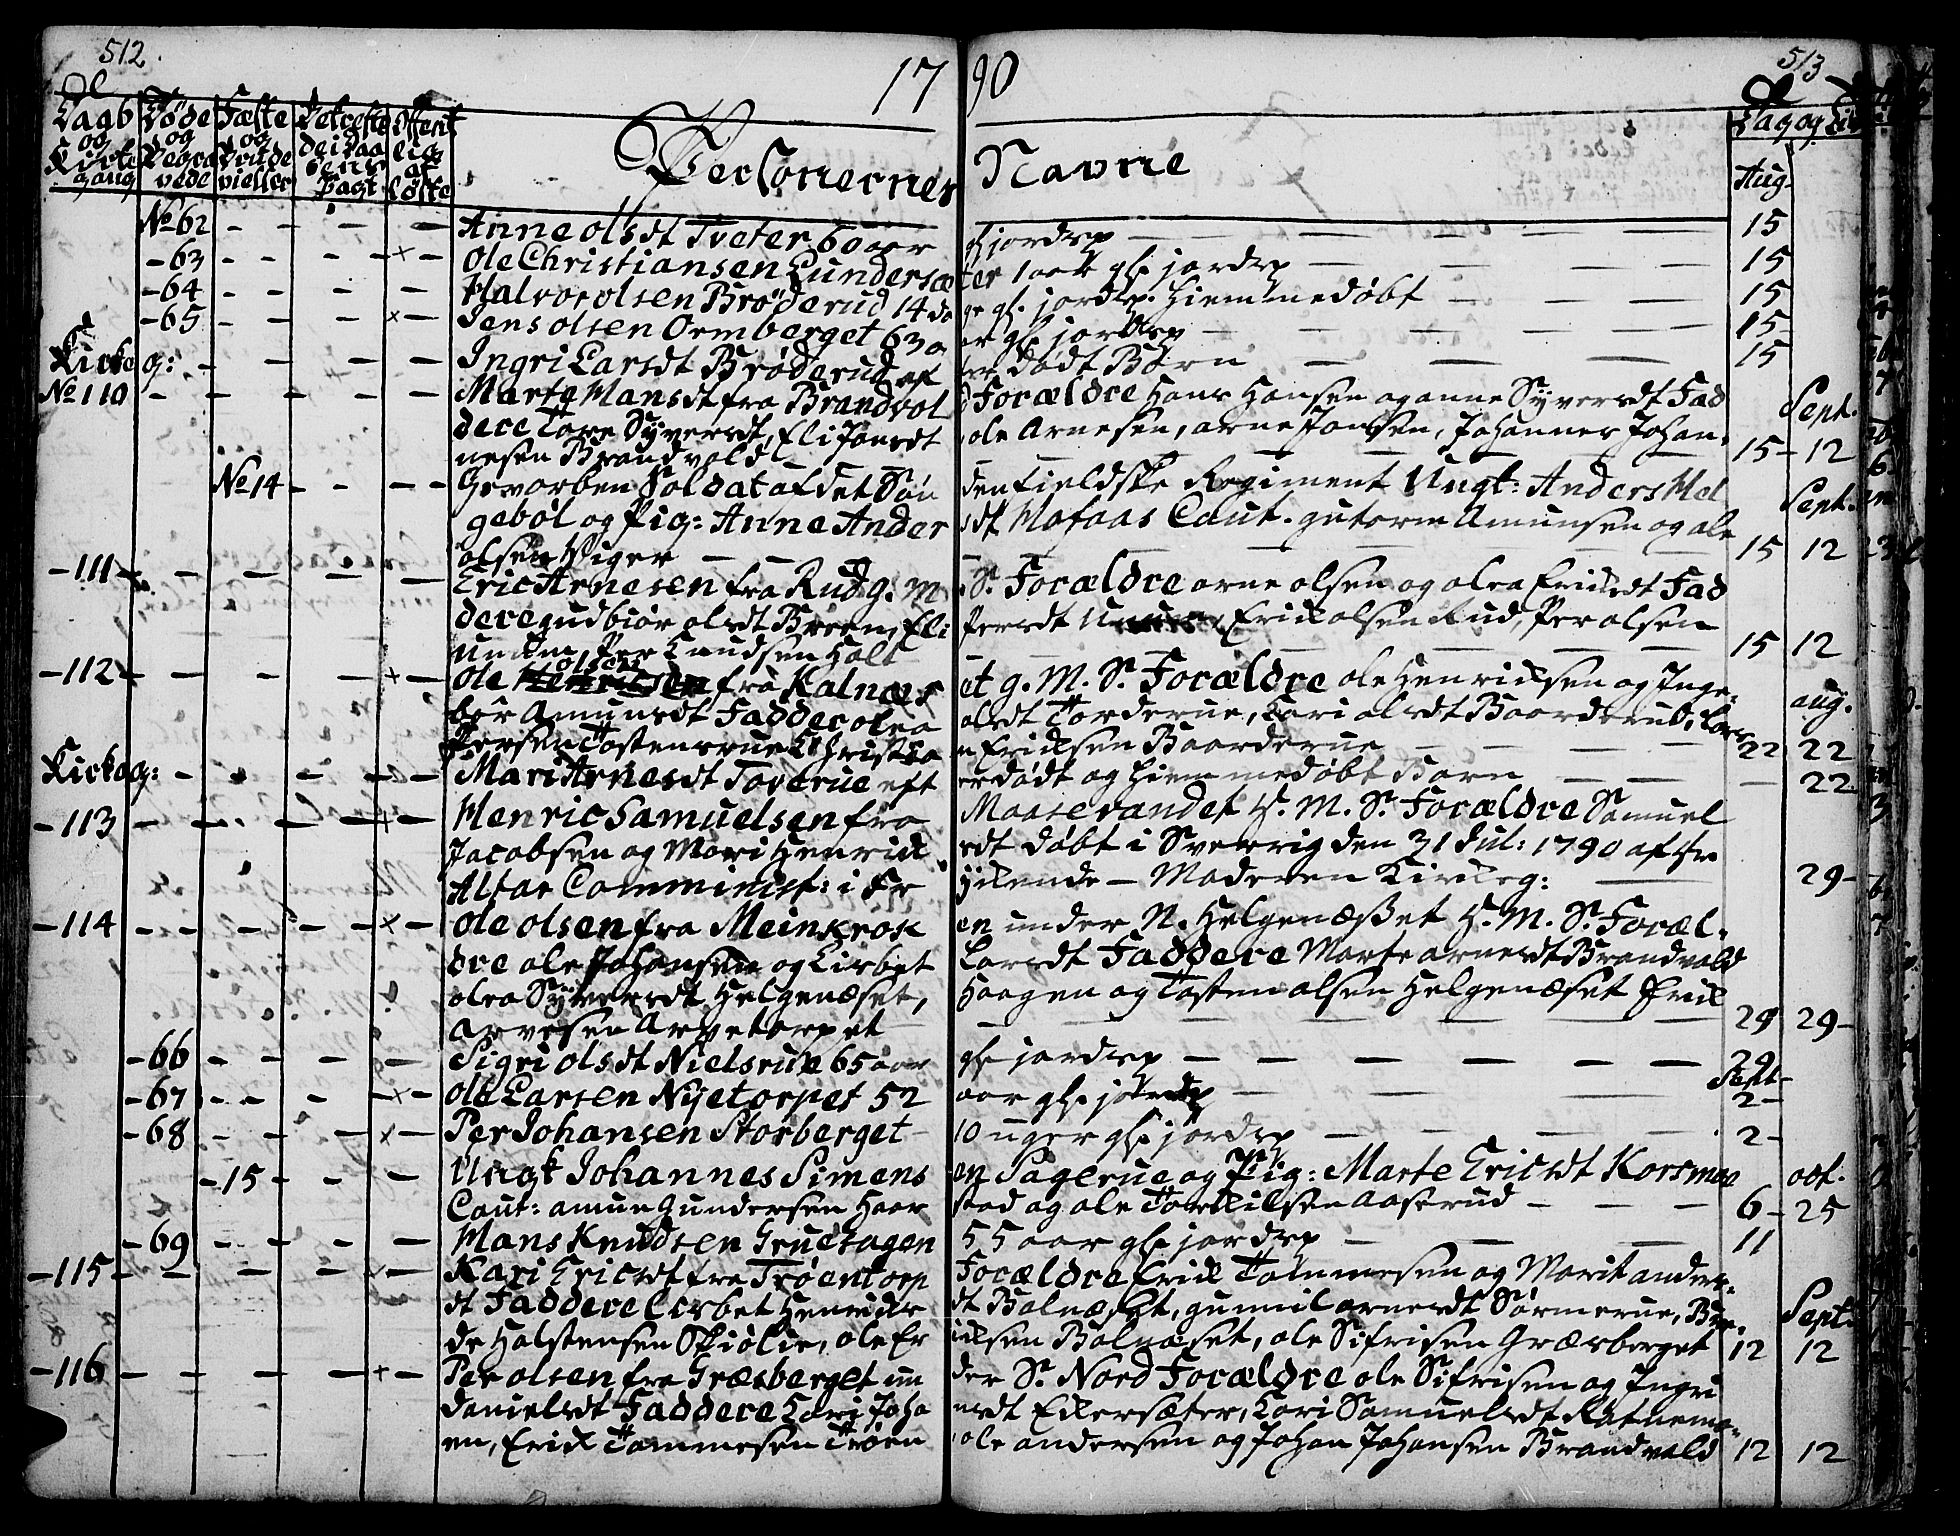 512.
17 90
513
Daab og Kirke gang
Døde og Begra vede
Fæste og Vielser
Personernes Navne
Dag og
Aug.
No 62 - - - - Anne Olsdt Tveter 60 aar gl. jordsp - - - 15
- 63 - - - × - Ole Christiansen Gundersæter 1 aar gl. jordsp - - 15
- 64 - - - - Halvor Olsen Brøderud 14 dage gl. jordsp. Hiemmedøbt - - 15
- 65 - - - × - Jens Olsen Ormberget 63 aar gl. jordsp - - - 15
Kirkeg: - - - - Ingri Larsdt Brøderud efter dødt Barn - - - 15
No 110 - - - - - Marte Hansdt fra Brandvold Forældre Hans Hansen og Anne Syversdt Fad
dere Tore Syversdt, Eli Jonsdt, Ole Arnesen, Arne Jonsen, Johannes Johan- Sept.
nesen Brandvold - - - 15 - 12
No 14 - - - - Gevorben Soldat af det Søndenfieldske Regiment Ungk: Anders Hel
gebøl og Pig: Anne Andersdt Mofaas Caut. Gutorm Amunsen og Ole Sept.
Olsen Viger - - - 15 12
- 111 - - - - - Eric Arnesen fra Rud g. M. S. Forældre Arne Olsen og Olea Ericksdt Fad
dere Gudbiør Olsdt Breen, Eli Persdt, Erick Olsen Rud, Per Olsen
Per Knudsen Holt - - - 15 12
- 112 - - - - × - Ole Olsen fra Kalnæset g. M. S. Forældre Ole Henricksen og Inge-
bør Amunsdt Faddere Olea Olsdt Torderue, Kari Olsdt Baarderud, Lars aug.
Persen Tostensrue Christian Ericksen Baarderue - - - 22 22
Kirkeg: - - - - - Mari Arnesdt Toverue efter dødt og hiemmedøbt Barn - - - 22
- 113 - - - - + - Henric Samuelsen fra Maasevandet V. M. S. Forældre Samuel
Jacobsen og Mari Henricksdt døbt i Sverrig den 31 Jul: 1790 af Hr
Altar Comminist: i Fryksende - Moderen Kirkeg: - 29 -
- 114 - - - - × - Ole Olsen fra Meinkroken under N. Helgenæsset V. M. S. Foræl-
dre Ole Johansen og Lisbet Larsdt Faddere Marte Arnesdt Brandvold
Olea Syversdt Helgenæset, Haagen og Tosten Olsen Helgenæset Erick
Arvesen Arvetorpet - - - 29 29 -
- 66 - - - - Sigri Olsdt Nielsrue 65 aar gl. jordsp - - - 29
Sept.
- 67 - - - × - Ole Larsen Nyetorpet 52 aar gl. jordsp - - - 2 -
- 68 - - - × - Per Johansen Storberget 10 uger gl. jordsp - - - 2 -
- 15 - - - Ungk Johannes Simensen Sagerue og Pig: Marte Ericsdt Korsmoe oct.
Caut: Amun Gundersen Haarstad og Ole Torkilsen Aaserud - - - 6 - 25
- 69 - - - - Hans Knudsen Gruesagen 55 aar gl. jordsp - - - 11
- 115 - - - - - Kari Ericsdt fra Trøentorp Forældre Erick Tommesen og Marit Anders-
dt Faddere Lisbet Henricksdt Bolnæsset, Gunnil Arnesdt Sørmerue, Sept.
de Holstensen Skiølie, Ole Ericksen Bolnæset, Ole Sifrisen Græsberget 12 12
- 116 - - - - + - Per Olsen fra Græsberget under S. Nord Forældre Ole Sifrisen og Ingri
Danielsdt Faddere Kari Johansdt Ekersæter, Kari Samuelsdt Røtnemo-
en, Erick Tommesen Trøen, Ole Andersen og Johan Johansen Brandvold 12 12